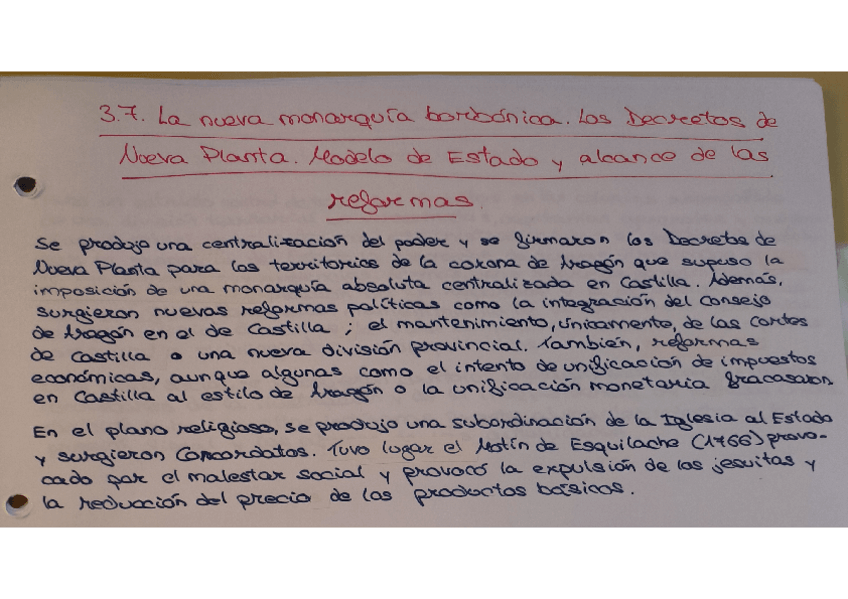 3.7. La nueva monarquía borbónica. Los Decretos de
Nueva Planta. Modelo de Estado y alcance de las
reformas.
Se produjo una centralización del poder y se firmaron los Decretos de
Nueva Planta para los territorios de la corona de Aragón que supuso la
imposición de una monarquía absoluta centralizada en Castilla. Además,
surgieron nuevas reformas políticas como la integración del Consejo
de Aragón en el de Castilla ; el mantenimiento, únicamente, de las Cortes
de Castilla o una nueva división provincial. También, reformas
económicas, aunque algunas como el intento de unificación de impuestos
en Castilla al estilo de Aragón o la unificación monetaria fracasaron
En el plano religioso, se produjo una subordinación de la Iglesia al Estado
y surgieron Concordatos. Tuvo lugar el Motín de Esquilache (1766) provo-
cado por el malestar social y provocó la expulsión de los jesuitas y
la reducción del precio de los productos básicos.